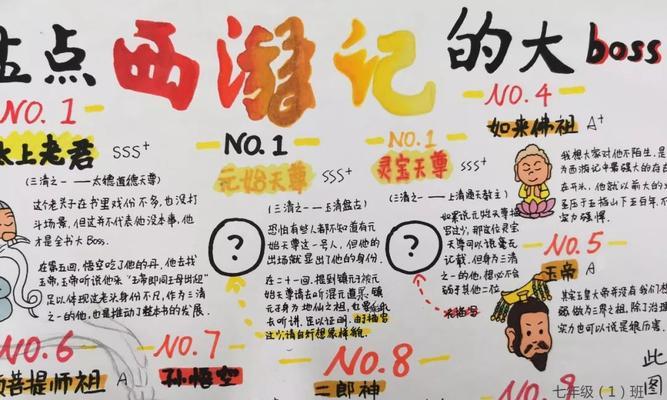 盘点西游记的大boss
NO.1
太上老君 SSS+
(三清之一——太德道德天尊)
这个老关于在书里戏份不多,也没打
斗场景,但这并不代表他没本事,他
才是全书大Boss.
在第五回,悟空吃了他的丹,他去找
玉帝,玉帝听说他来“玉帝即同王母出迎”
足以体现这老头身份不凡,作为三清
之一的他,也是推动了整本书的发展.
NO.1
元始天尊 SSS+
(三清之一——玉清盘古)
?
恐怕有些人都不知道有元
始天尊这一号人,但他的
出场就显出了他的身份.
在二十一回,提到镇元子被元
始天尊请去听混元道果,镇
元子身为地仙之祖,也要
去听讲,足以证明.
过少,请自行想象样貌.
NO.1
灵宝天尊 SSS+
(三清之一——上清通天教主)
?
如果说元始天尊描
写过少,那这位灵宝
天尊可以说毫无
记载.但身为三清
之一的他,想必不会
弱于其他二位.
NO.4
如来佛祖 A+
我想大家对他不陌生,是
为西游记中最强大的存在
在斗米,他就以前大的
圣压于五指山下五百年,不
实力强悍.
NO.5
玉帝 A
其实玉皇大帝并没有我们想
弱,做为三界之祖,除了治理
实力也可以说是狠厉害.
NO.6
须菩提师祖 A
NO.7
孙悟空
NO.8
二郎神
NO.9
此
图
七年级(1)班